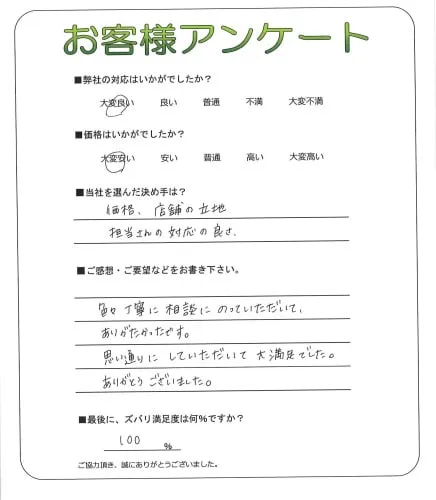 お客様アンケート
■弊社の対応はいかがでしたか？
大変良い　良い　普通　不満　大変不満
■価格はいかがでしたか？
大変安い　安い　普通　高い　大変高い
■当社を選んだ決め手は？
価格、店舗の立地
担当さんの対応の良さ、
■ご感想・ご要望などをお書き下さい。
色々丁寧に相談にのっていただいて、
ありがたかったです。
思い通りにしていただいて大満足でした。
ありがとうございました。
■最後に、ズバリ満足度は何%ですか？
100 %
ご協力頂き、誠にありがとうございました。